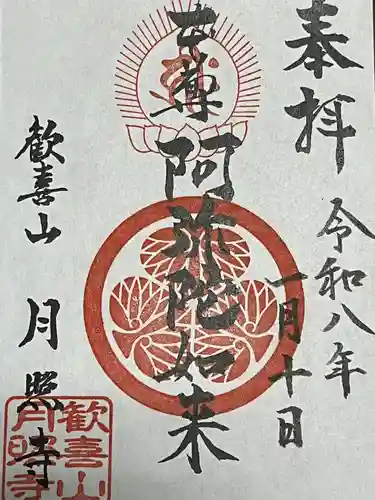 奉拝
令和八年
一月十日
本尊阿弥陀如来
歓喜山
月照寺
歓喜山
月照寺